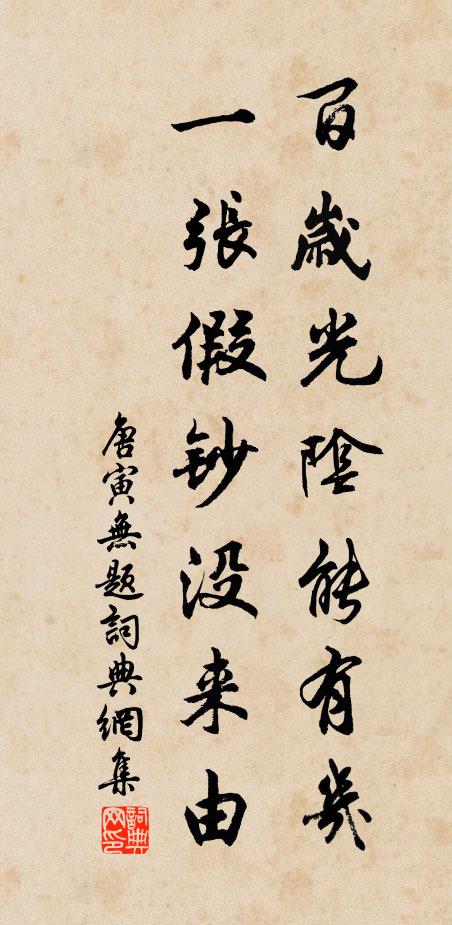 百歲光陰能有幾
一張假鈔没来由
唐寅無題詞典網集
詞典
网印